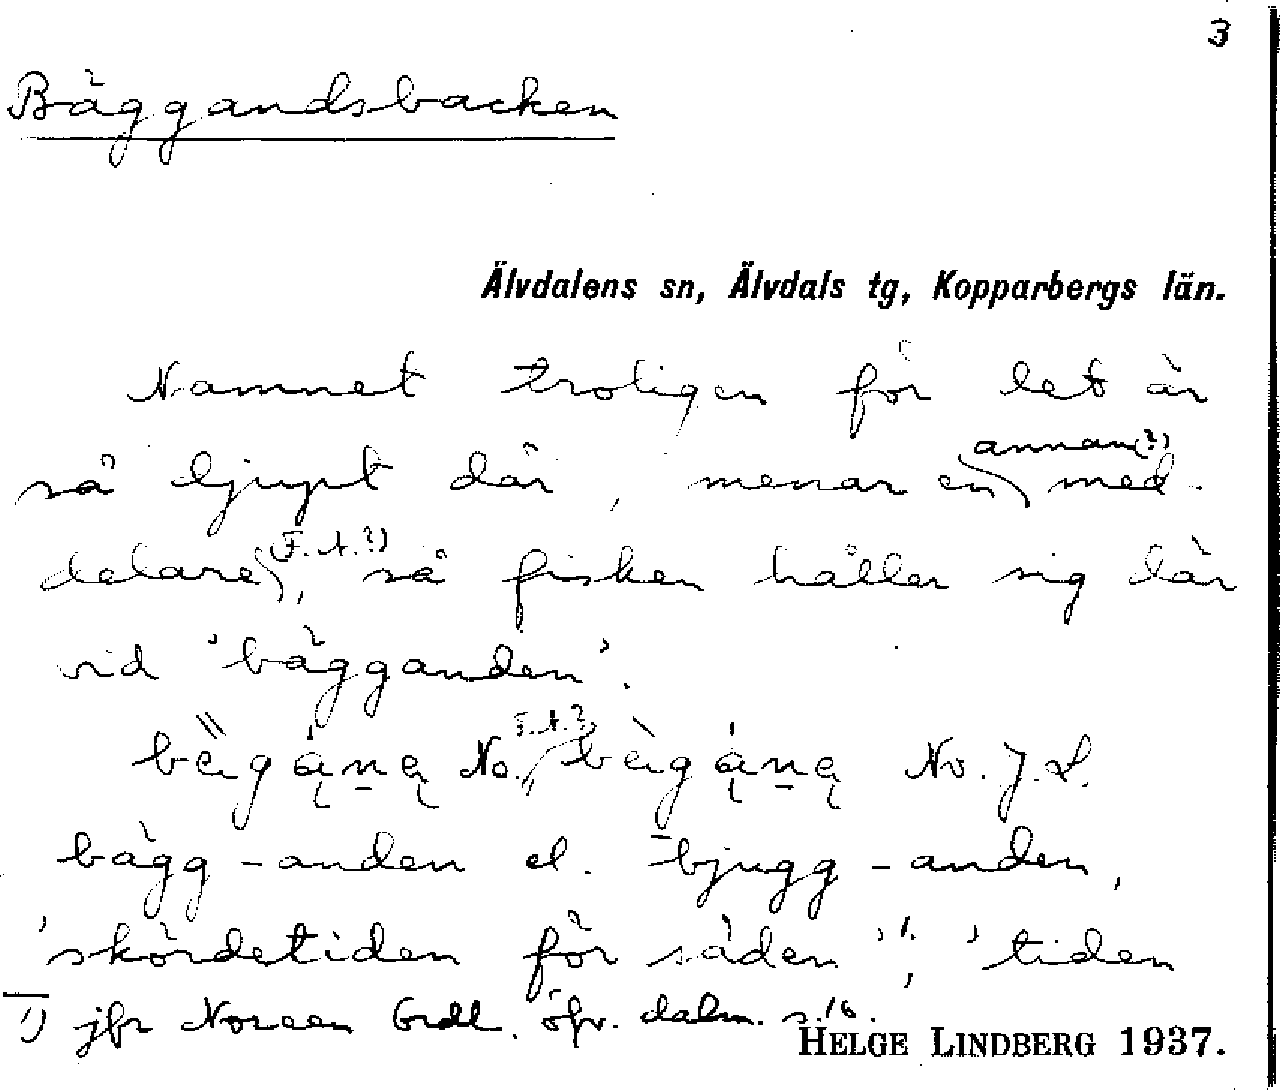 3
Bäggandsbacken
Älvdalens sn, Älvdals tg, Kopparbergs län.
Namnet troligen för det är
annan(?)
så djupt där, menar en med-
(F.A.?)
delare, så fisken håller sig där
vid 'bägganden'.
F.A.?
No. No. J.L.
bägg-anden el. bjugg-anden,
'skördetiden för säden' ¹⁾; 'tiden
1) jfr Noreen Ordl. öfv. dalm. s. 16.
HELGE LINDBERG 1937.